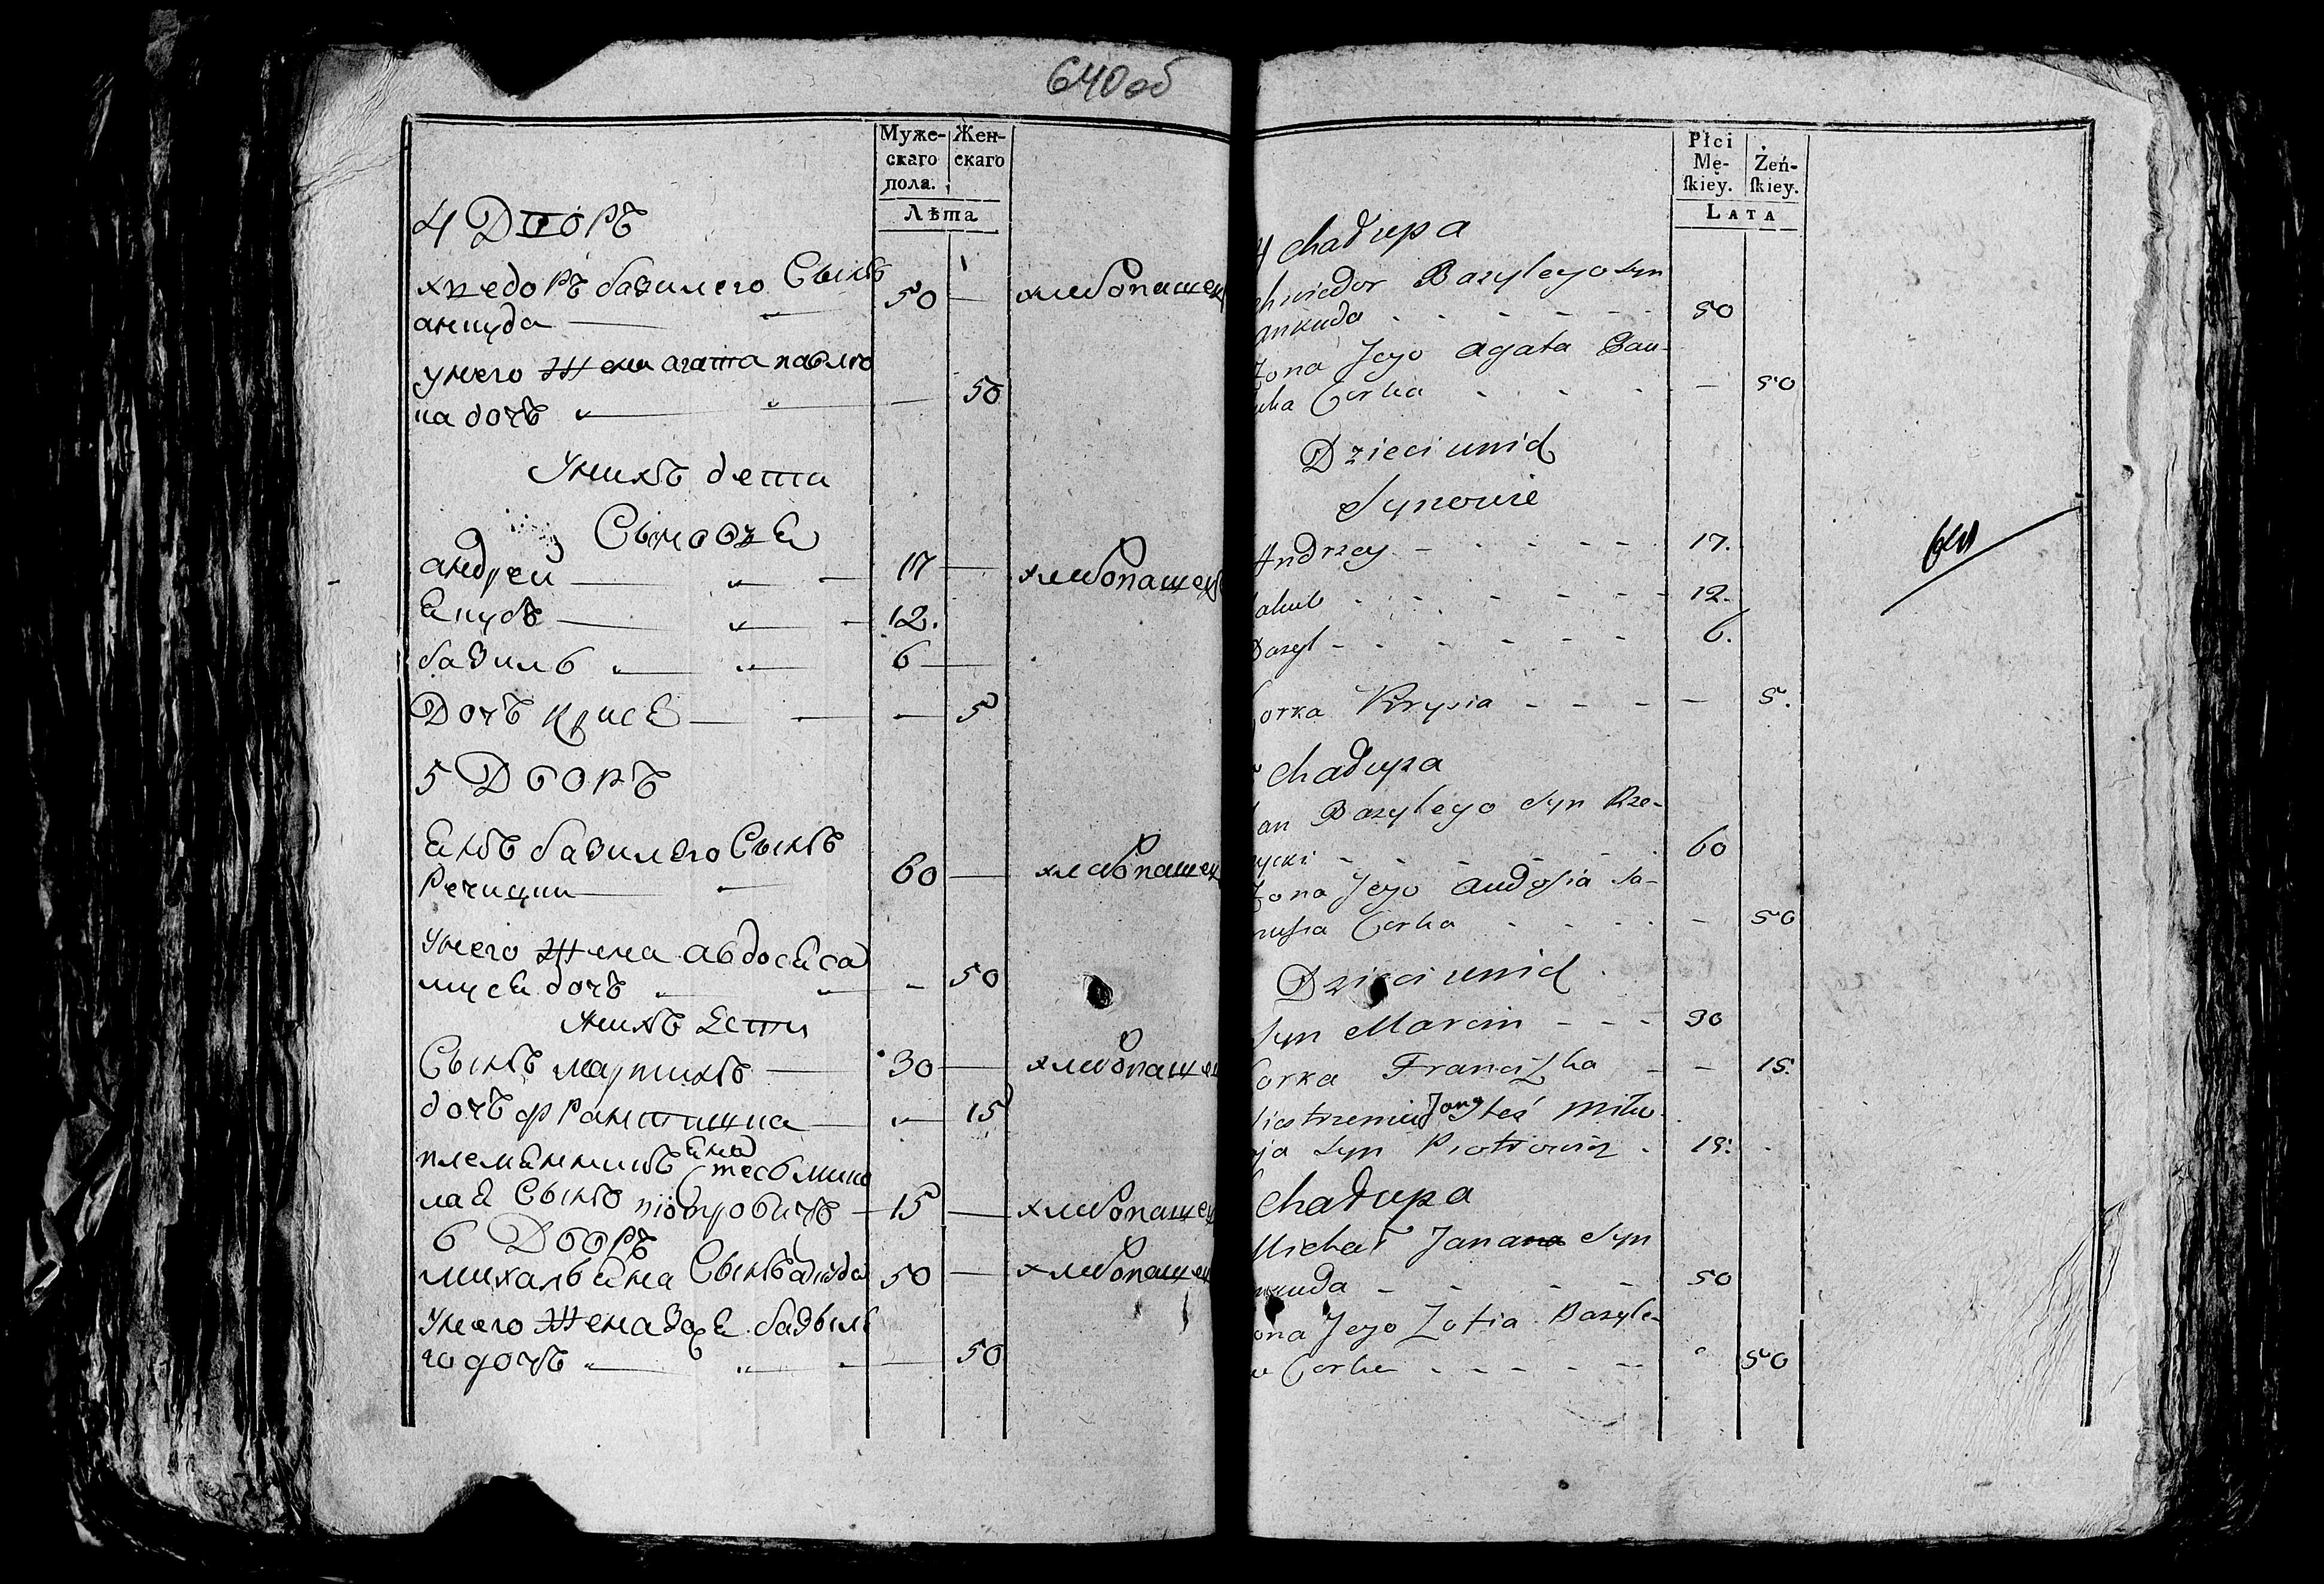 640об
Муже-
скаго
пола.
Жен-
скаго
Лѣта
4 Дворъ
хведоръ базилего Сынъ
анкуда 50 — хлебопашец
унего жена агата павлю
ка дочъ — 50
Унихъ дети
Сыновя
андрей 17 — хлебопашец
Якубъ 12.
базиль 6 —
Дочъ крися — 5
5 Дворъ
Янъ базилего Сынъ
Речицки 60 — хлебопашец
Унего жена авдося са
муся дочъ — 50
Унихъ дети
Сынъ мартинъ 30 — хлебопашец
дочъ францишка — 15
племянникъ яна
тесь мико
лая Сынъ пiотровичъ 15 — хлебопашец
6 Дворъ
михалъ яна Сынъ анкуда 50 — хлебопашец
Унего жена зофя базыле
го дочъ — 50
Płci
Mę-
ſkiey.
Żeń-
ſkiey.
LATA
4 chałupa
chwiedor Bazylego Syn
ankuda 50
Zona Jego agata Pau-
luka Corka — 50
Dzieci unich
Synowie
Andrzey 17.
Jakub 12.
Bazyl 6.
Corka Krysia — 5.
5 chałupa
Jan Bazylego Syn Rze-
czycki 60
Zona Jego audosia Sa-
musia Corka — 50
Dzieci unich
Syn Marcin 30
Corka Franciszka — 15.
Siestrzeniec Jana teś Miko
łaja Syn Piotrowicz 15.
Chałupa
Michał Jana Syn
ankuda 50
Zona Jego Zofia Bazyle-
go Corka 50